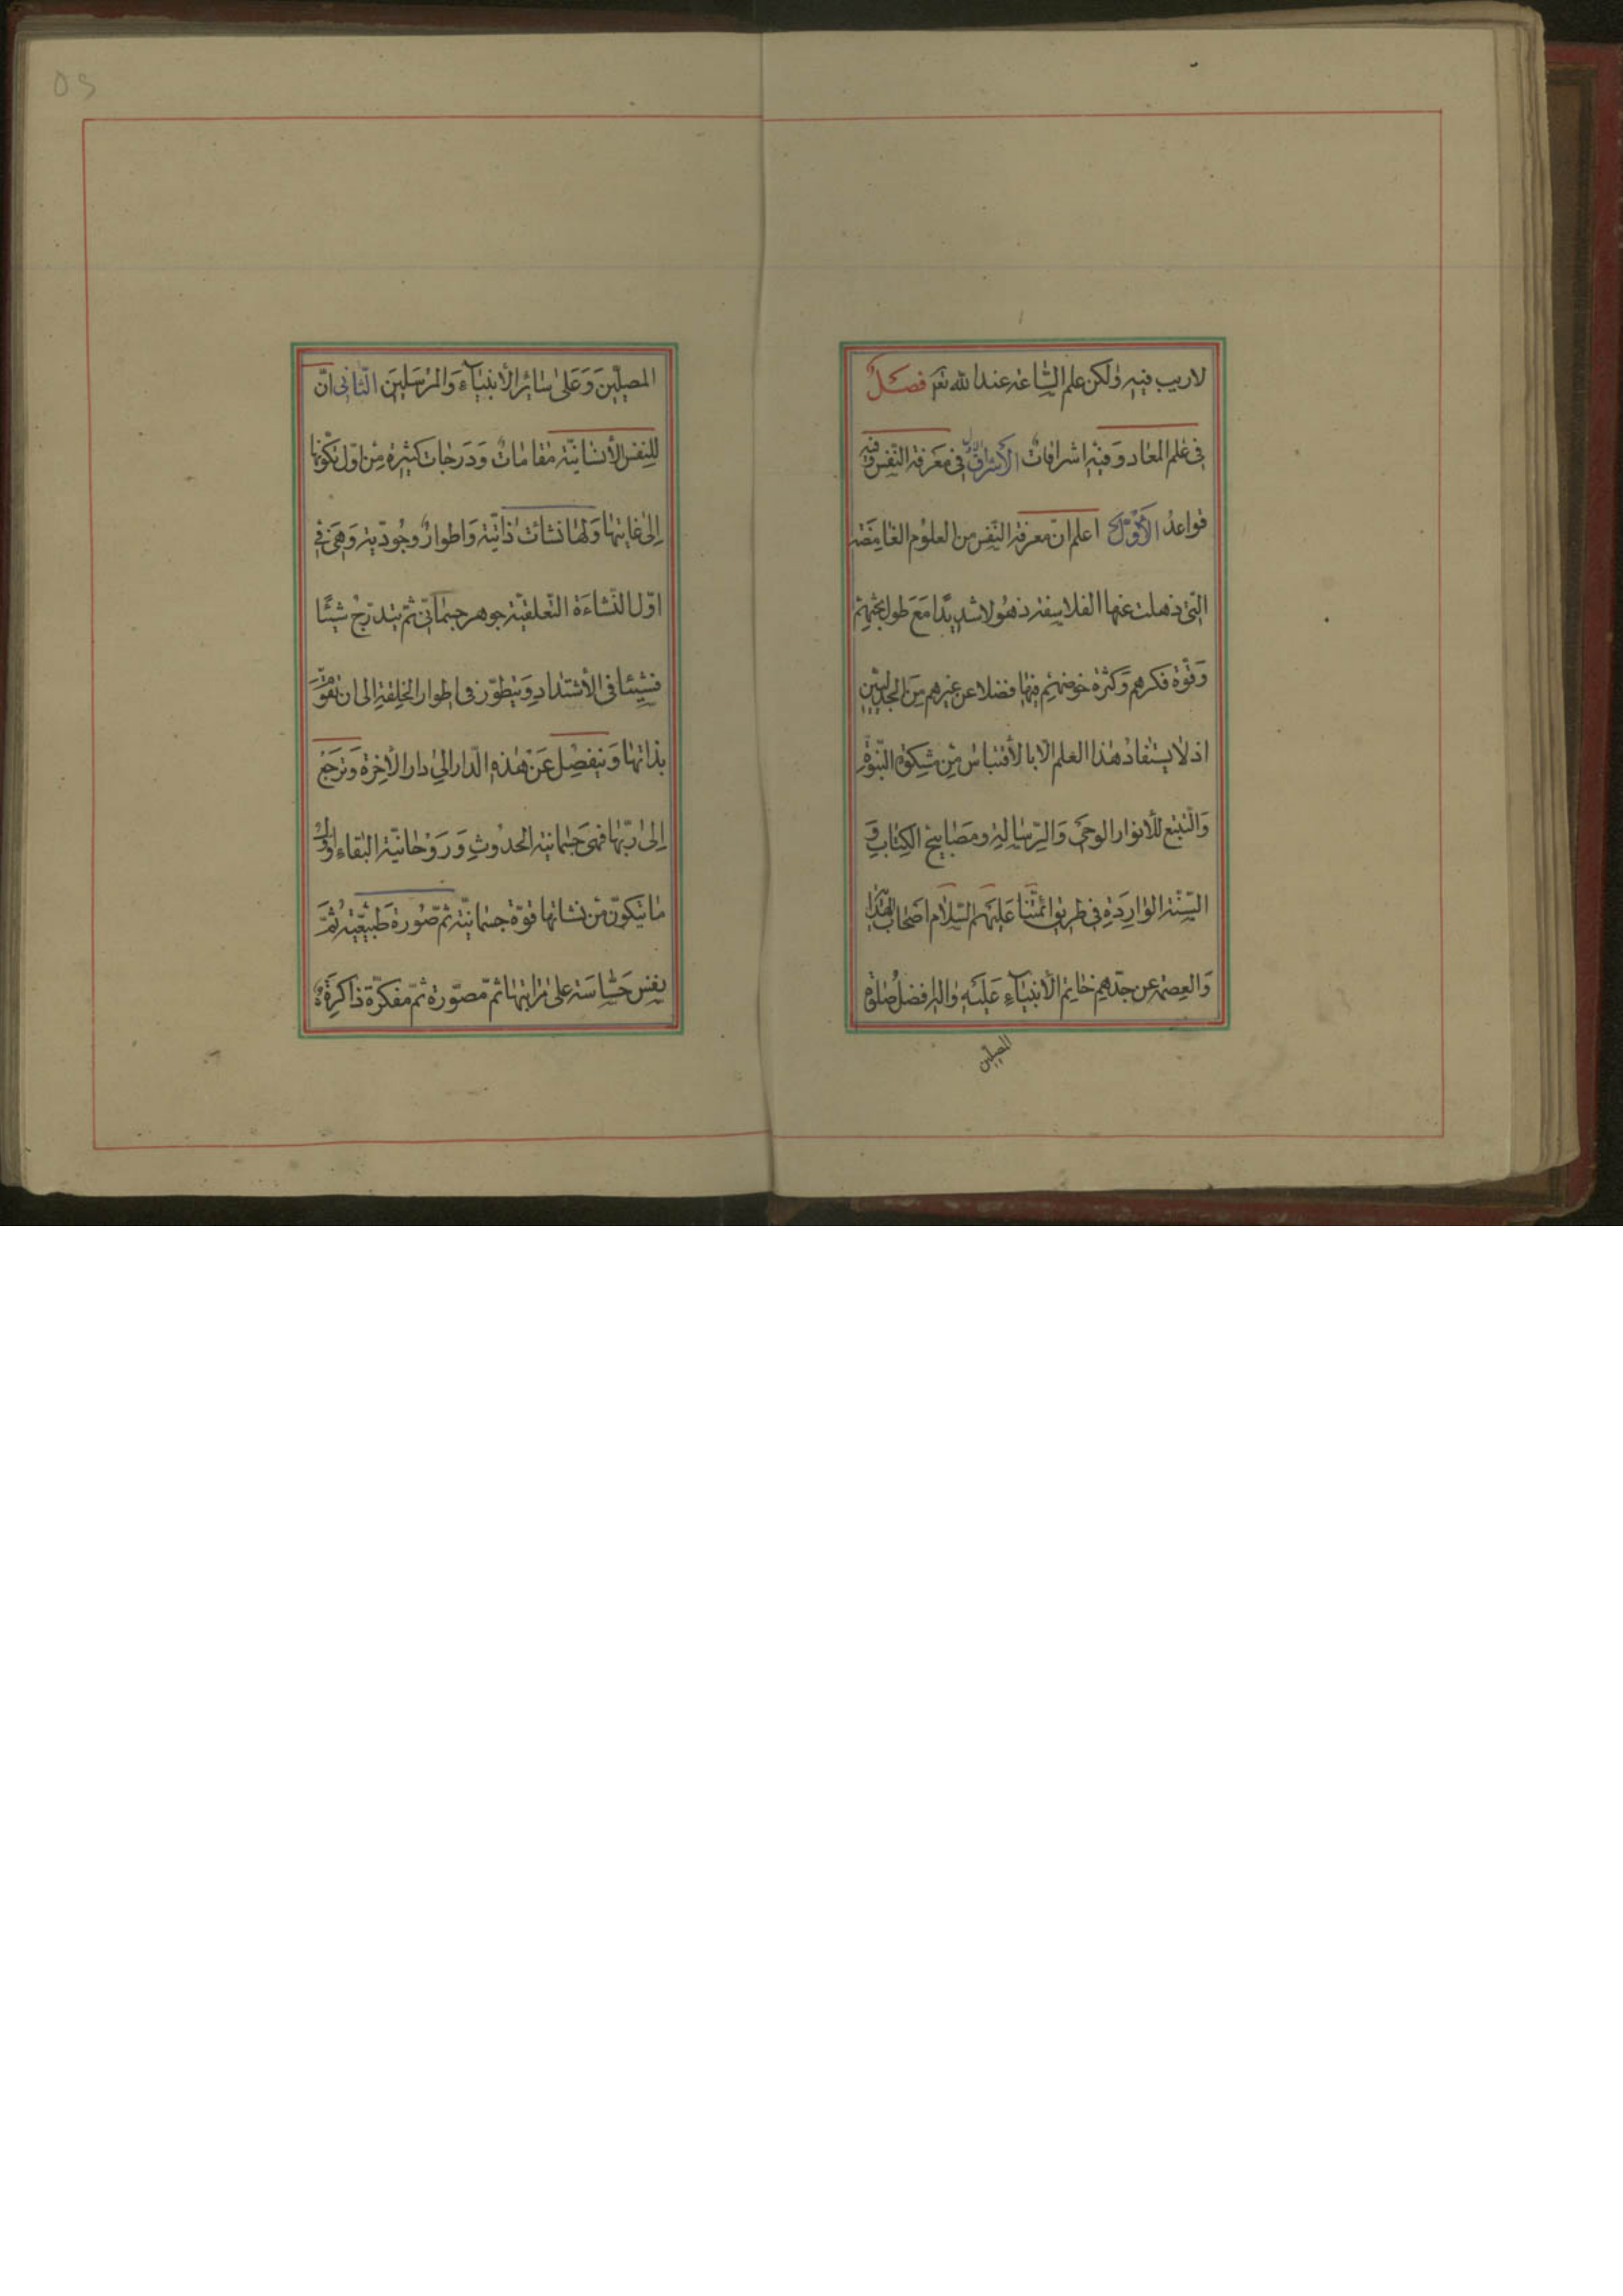 لاريب فيه ولكن علم الساعة عند الله تع فصل
في علم المعاد وفيه اشراقات الأشراق الأول في معرفة النفس وفيه
قواعد الأول اعلم ان معرفة النفس من العلوم الغامضة
التي ذهلت عنها الفلاسفة ذهولا شديدا مع طول بحثهم
وقوة فكرهم وكثرة خوضهم فيها فضلا عن غيرهم من الجدليين
اذ لا يستفاد هذا العلم الا بالأقتباس من مشكوة النبوة
والتتبع للأنوار الوحي والرسالة ومصابيح الكتاب و
السنة الواردة في طريق ائمتنا عليهم السلام اصحاب الهداية
والعصمة عن جدهم خاتم الأنبياء عليه واله افضل صلوة
المصلين
المصلين وعلى سائر الأنبياء والمرسلين الثاني ان
للنفس الأنسانية مقامات ودرجات كثيرة من اول تكونها
الى غايتها ولها نشات ذاتية واطوار وجودية وهي في
اول النشاءة التعلقية جوهر جسماني ثم يتدرج شيئا
فشيئا في الأشتداد ويتطور في اطوار الخلقة الى ان تقوم
بذاتها وينفصل عن هذه الدار الى دار الأخرة وترجع
الى ربها فهي جسمانية الحدوث وروحانية البقاء واول
ما يتكون من نشاتها قوة جسمانية ثم صورة طبيعية ثم
نفس حساسة على مراتبها ثم مصورة ثم مفكرة ذاكرة